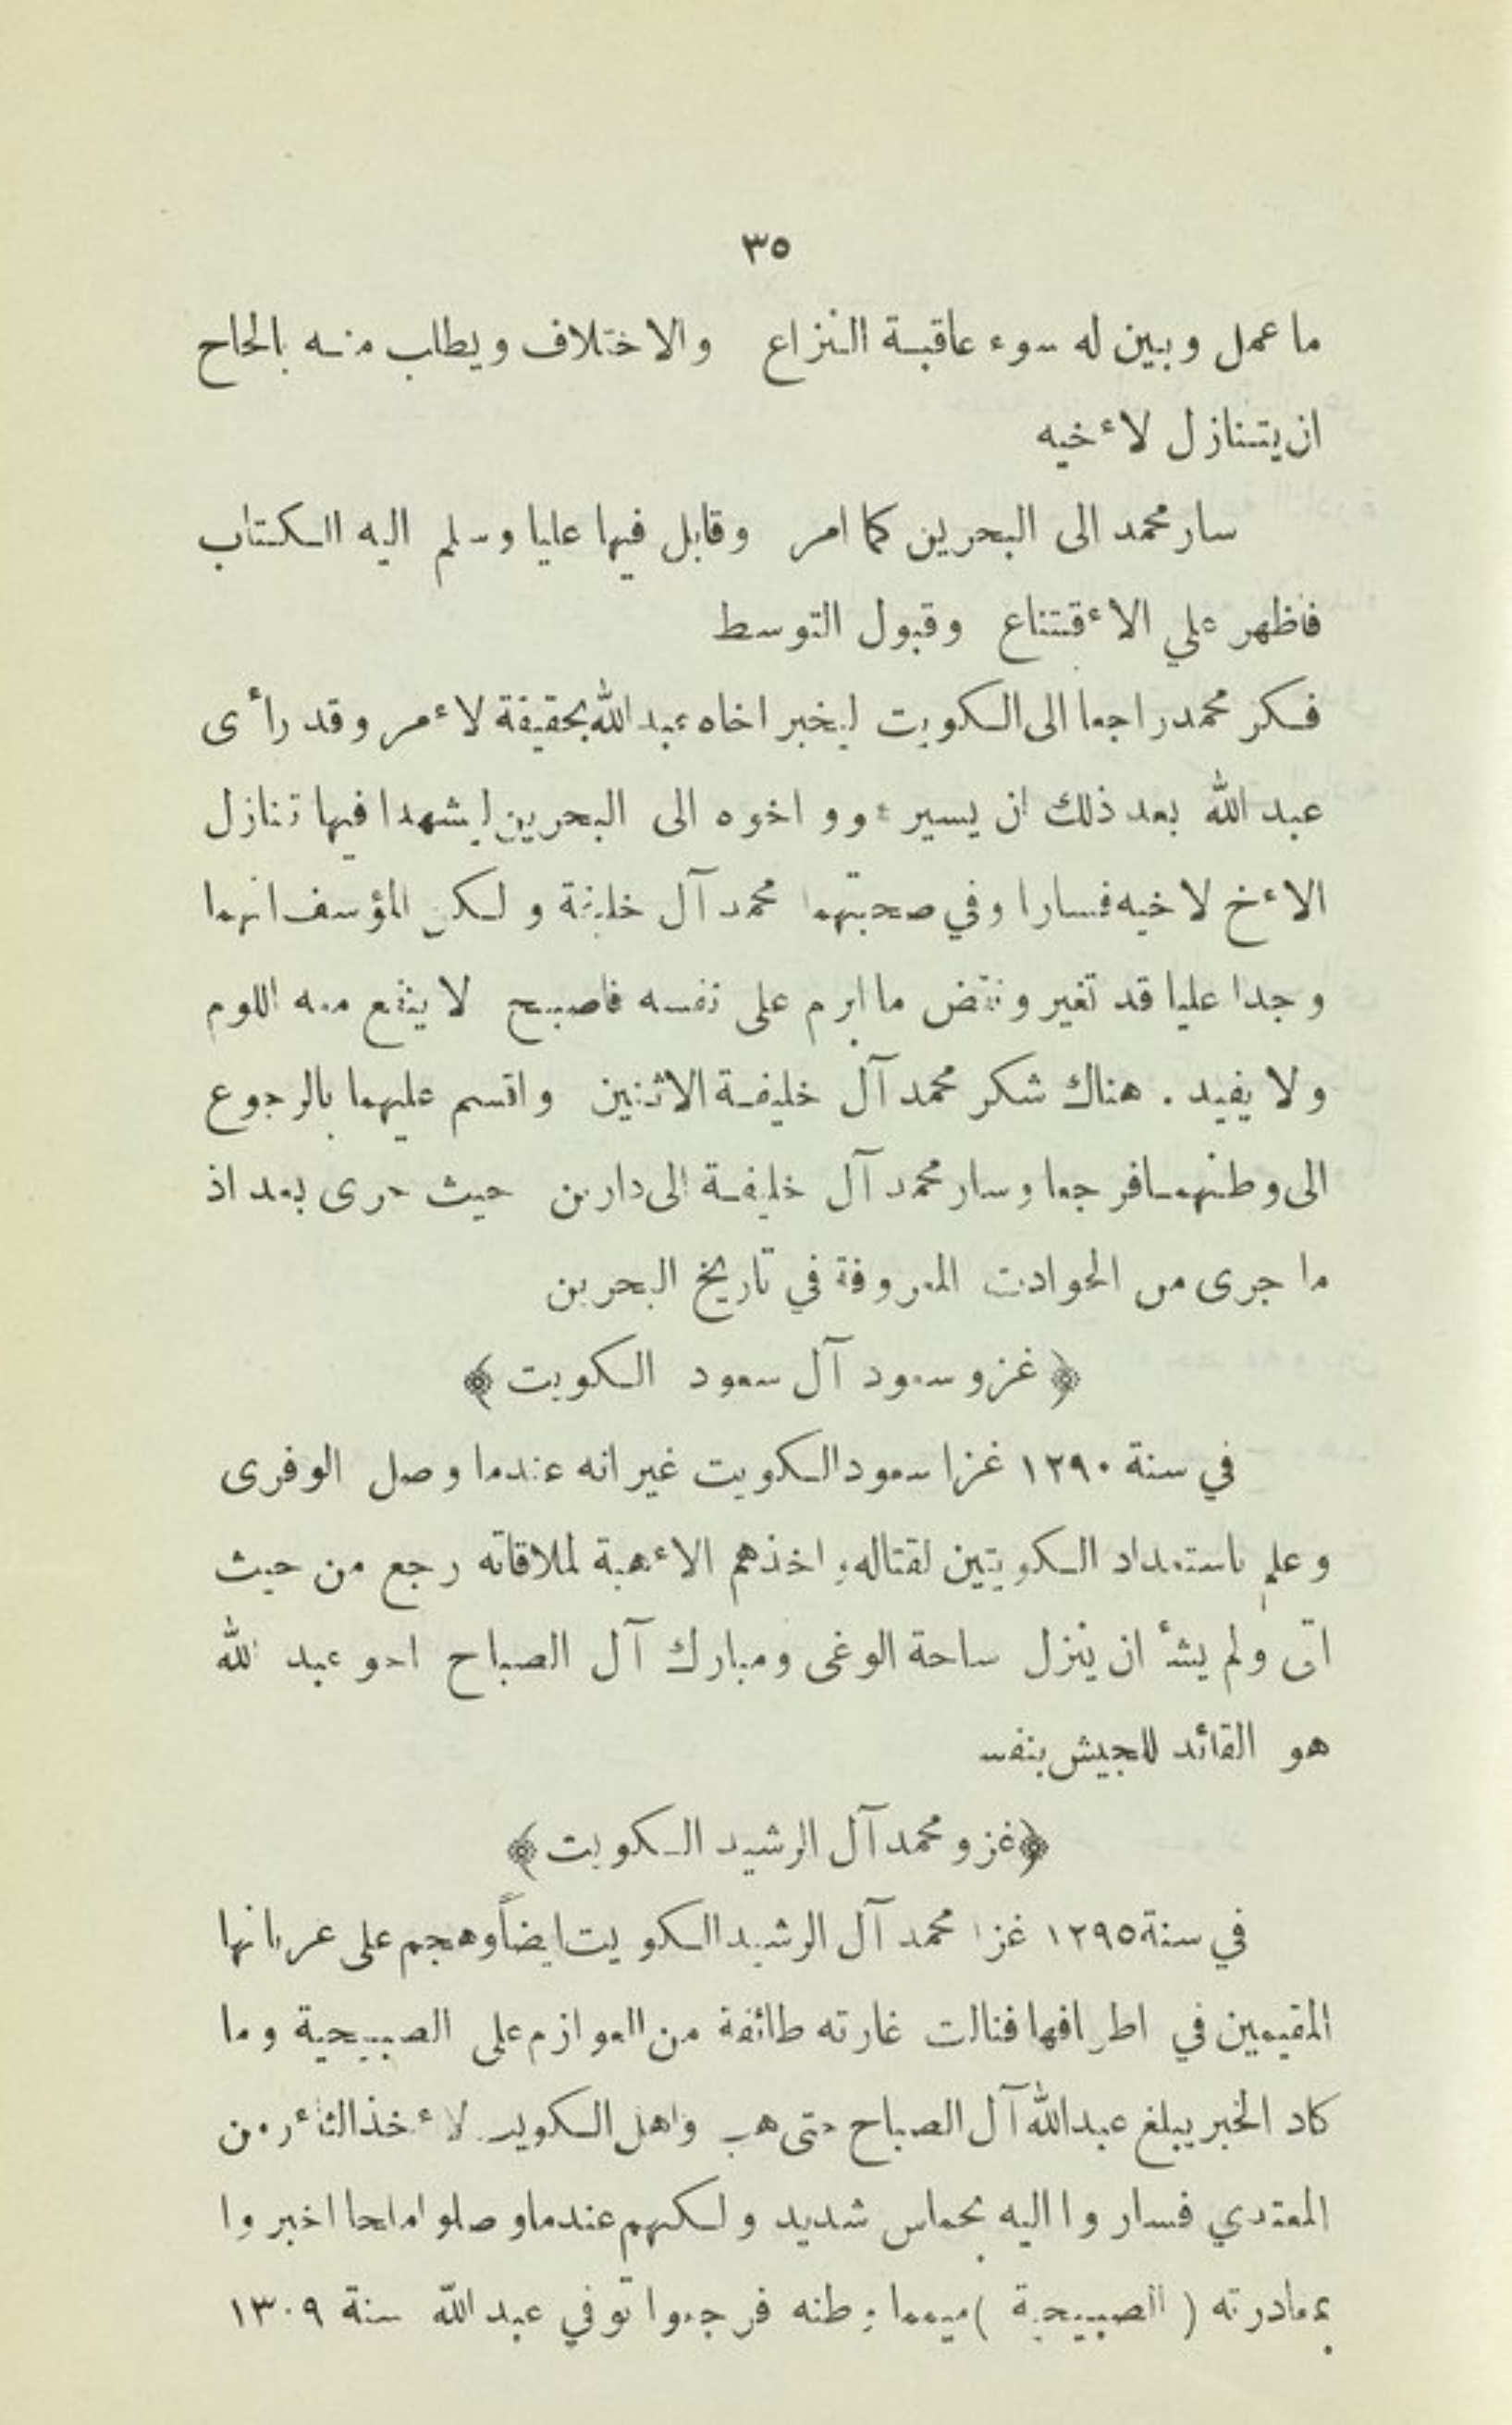 ٣٥
ما عمل وبين له سوء عاقبة النزاع والاختلاف ويطلب منه بالحاح
ان يتنازل لاءخيه
سار محمد الى البحرين كما امر وقابل فيها عليا وسلم اليه الكتاب
فاظهر علي الاءقتناع وقبول التوسط
فكر محمد راجعا الى الكويت ليخبر اخاه عبد الله بحقيقة لاءمر وقد رأى
عبد الله بعد ذلك ان يسير واخوه الى البحرين ليشهدا فيها تنازل
الاءخ لاخيه فسارا وفي صحبتهما محمد آل خليفة ولكن المؤسف انهما
وجدا عليا قد تغير ونقض ما ابرم على نفسه فاصبح لا ينفع معه اللوم
ولا يفيد . هناك شكر محمد آل خليفة الاثنين واقسم عليهما بالرجوع
الى وطنهما فرجعا وسار محمد آل خليفة الى دارين حيث جرى بعد اذ
ما جرى من الحوادث المعروفة في تاريخ البحرين
﴿ غزو سعود آل سعود الكويت ﴾
في سنة ١٢٩٠ غزا سعود الكويت غير انه عندما وصل الوفرى
وعلم باستعداد الكويتين لقتاله واخذهم الاءهبة لملاقاته رجع من حيث
اتى ولم يشأ ان ينزل ساحة الوغى ومبارك آل الصباح اخو عبد الله
هو القائد للجيش بنفسه
﴿ غزو محمد آل الرشيد الكويت ﴾
في سنة ١٢٩٥ غزا محمد آل الرشيد الكويت ايضاً وهجم على عربانها
المقيمين في اطرافها فنالت غارته طائفة من العوازم على الصبيحية وما
كاد الخبر يبلغ عبد الله آل الصباح حتى هب واهل الكويت لاءخذ الثاءر من
المعتدي فساروا اليه بحماس شديد ولكنهم عندما وصلوا املحا اخبروا
بمغادرته ( الصبيحية ) ميمما وطنه فرجعوا توفي عبد الله سنة ١٣٠٩